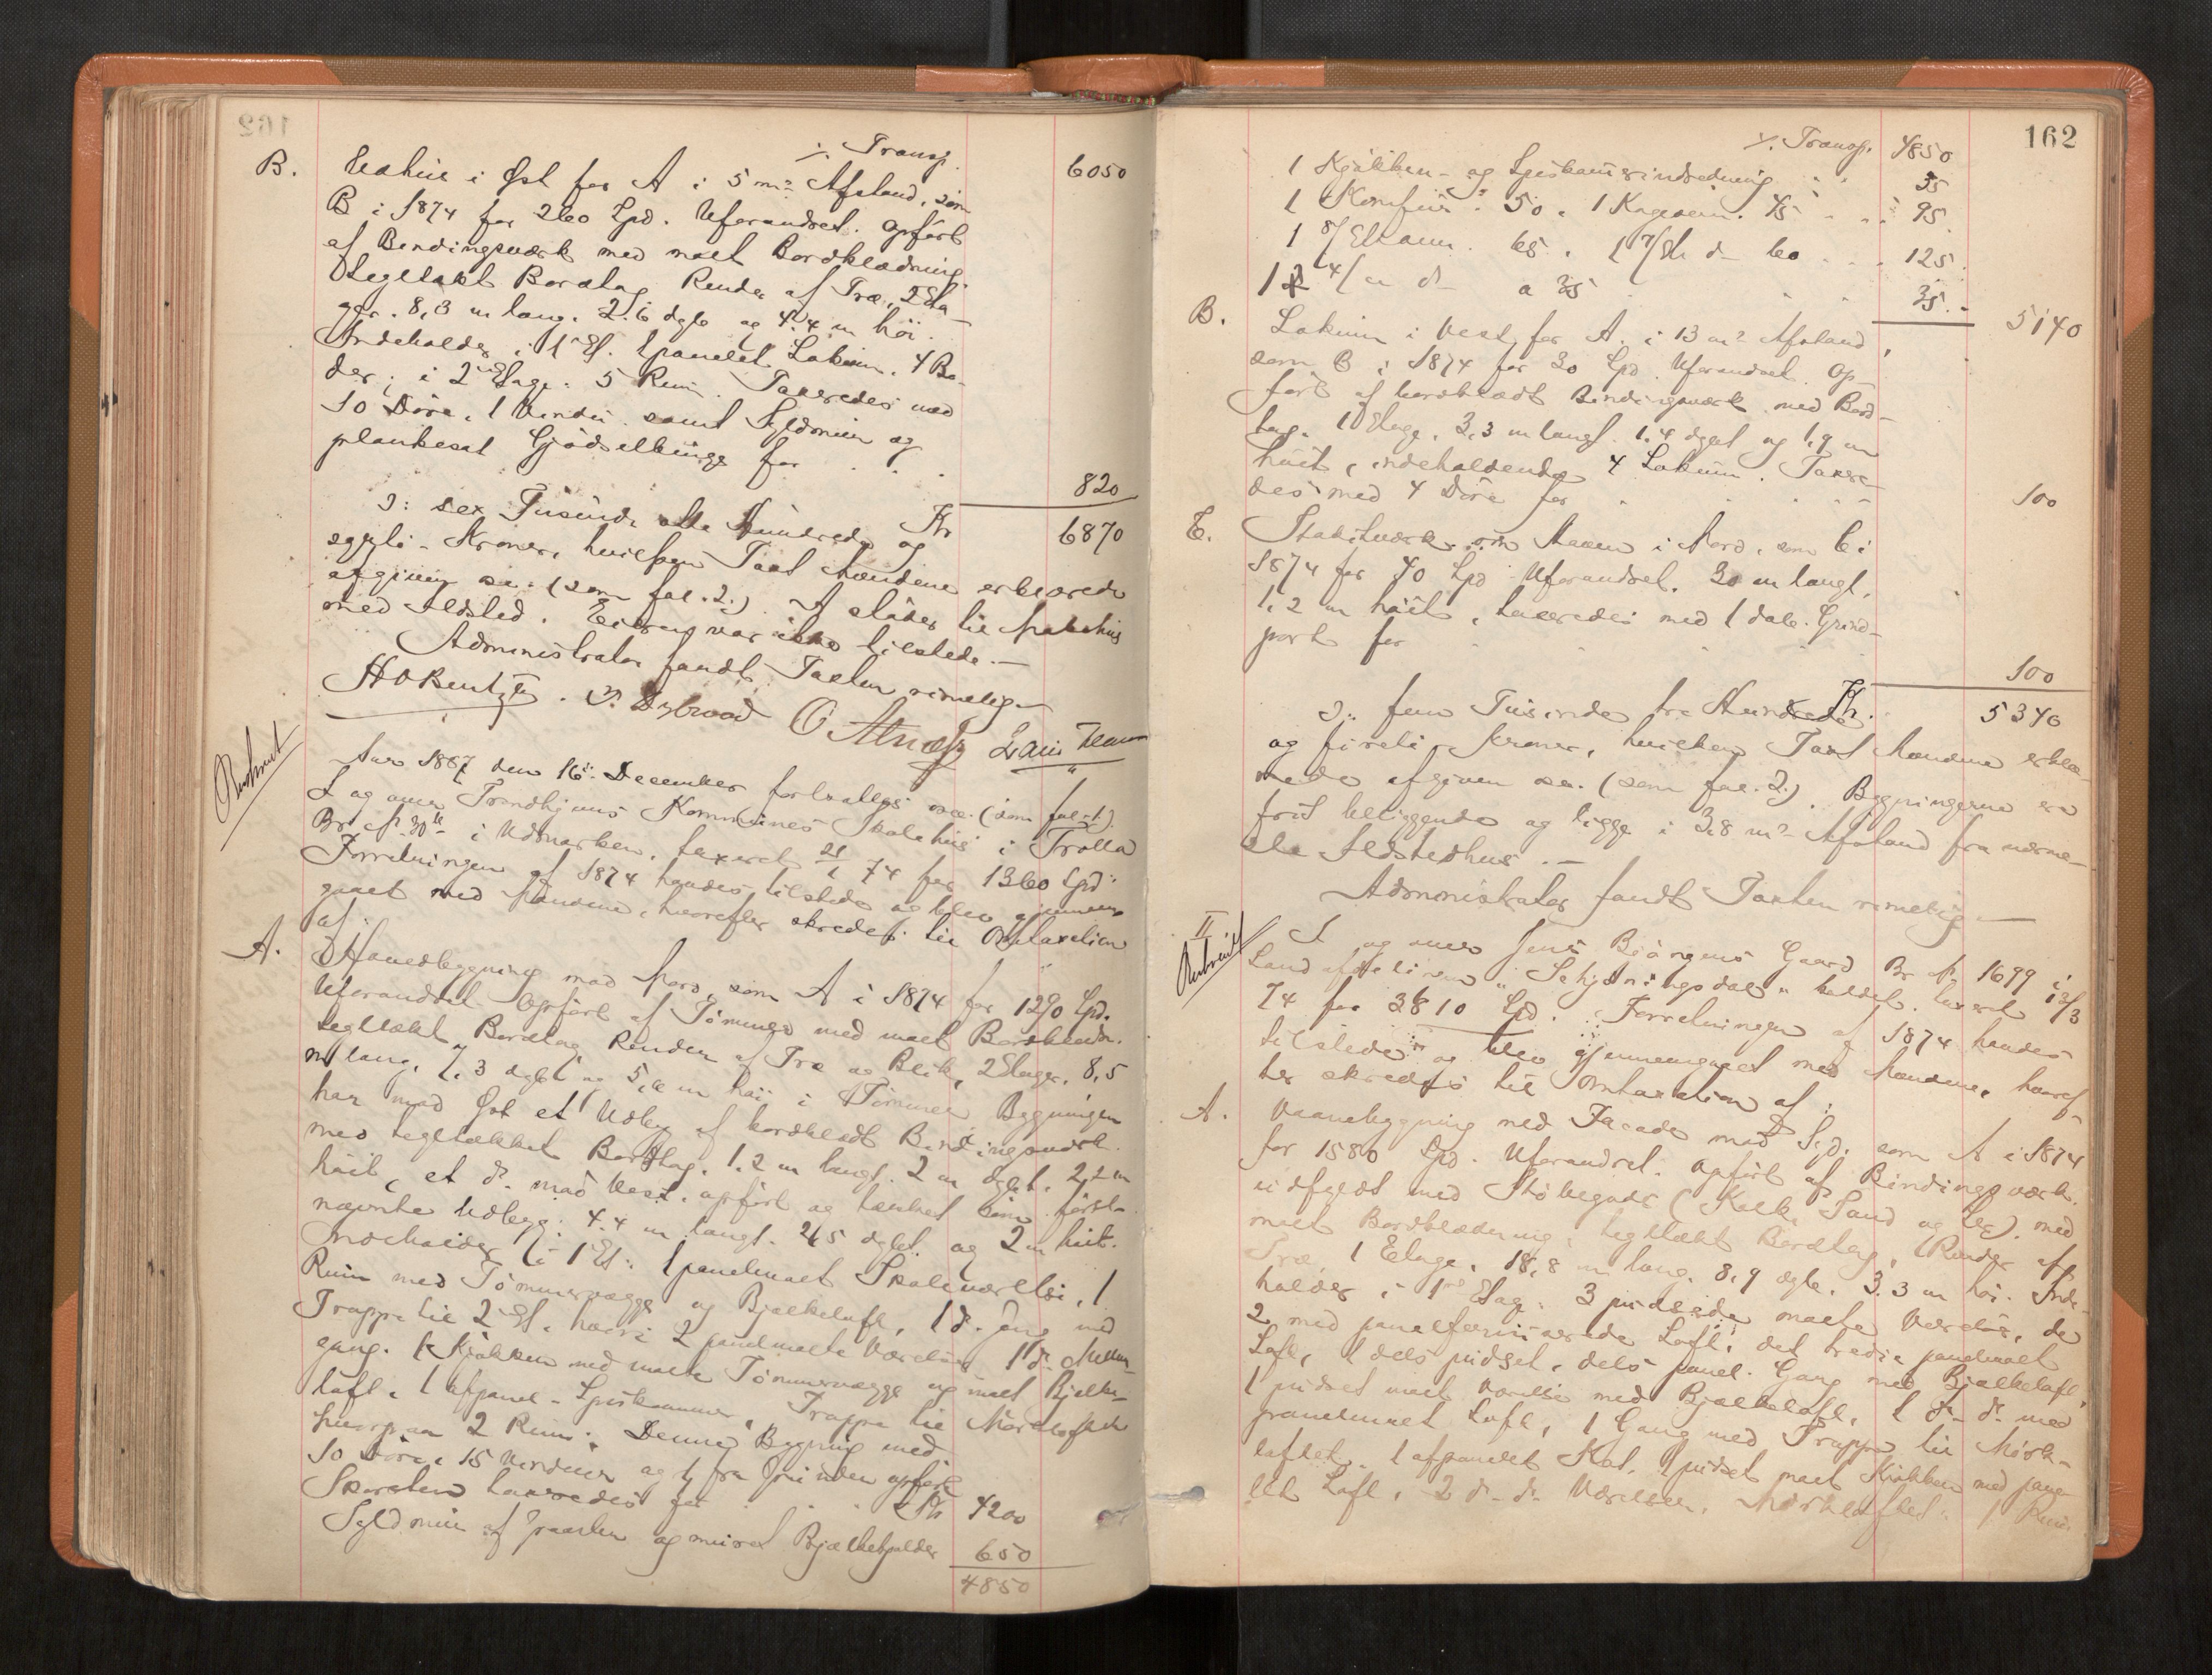 ÷ Transp. 6050
B. Udhus i Øst for A i 5 m² Afstand, som
B i 1874 for 260 Spd. Uforandret. Opført
af Bindingsværk med malt Bordklædning
Tegltækt Bordtag Render af Træ, 2 Eta-
ger. 8,3 m lang. 2.6 dyb og 4.4 m høi.
Indeholder i 1ste Et. 1 panelet Lokum, 4 Bo-
der; i 2den Etage: 5 Rum. Taxeredes med
10 Døre, 1 Vindu samt Syldmur og
plankesat Gjødselbinge for . . . 820
Kr 6870
ɔ: sex Tusinde otte Hundrede og
sytti - Kroner, hvilken Taxt Mændene erklærede
afgiven sa. (som fol. 2.) A støder til Nabohus
med Ildsted. Eieren var ikke tilstede. —
Administrator fandt Taxten rimelig —
H O Bentzen . P. Dybwad O Alnæs
Aar 1887 den 16de December fortsattes osv. (som fol. 1).
Indført
I og over Trondhjems Kommunes Skolehus i Trolla
Br. № 30 b i Udmarken, taxeret 21/1 74 for 1360 Spd.
Forretningen af 1874 havdes tilstede og blev gjennem-
gaaet med Mændene, hvorefter skredes til Omtaxation
af:
A. Hovedbygning mod Nord, som A i 1874 for 1290 Spd.
Uforandret. Opført af Tømmer med malt Bordklædn.
tegltækt Bordtag Render af Træ og Blik, 2 Etager, 8,5
m lang, 7,3 dyb og 5,6 m høi i Tømmer Bygningen
har mod Øst et Udbyg af bordklædt Bindingsværk
med tegltækket Bordtag. 1.2 m langt. 2 m dybt. 2,2 m
høit, et do. mod Vest, opført og tækket som først-
nævnte Udbygg: 4.4 m langt. 2,5 dybt og 2 m høit.
Indeholder i 1 Et: 1 panelmalt Skoleværelse, 1
Rum med Tømmervægge og Bjælkeloft, 1 do. Gang med
Trappe til 2 Et. hvori 2 panelmalte Værelser 1 do. Mellem-
gang. 1 Kjøkken med malte Tømmervægge og malt Bjelke-
loft. 1 afpanel. Spiskammer, Trappe til Mørkeloftet
hvorpaa 2 Rum. Denne Bygning med
10 Døre, 15 Vinduer og 1 fra Grunden opført
Skorsten taxeredes for . . . Kr 4200
Syldmur af Graasten og muret Bjælkekjelder 650
4850
162
÷ Transp. 4850
1 Kjøkken- og Spiskammerindredning . . 35
1 Komfur 50. 1 Kageovn. 45 . . . 95.
1 8/Et ovn. 65. 1 7/Et do 60 . . . 125.
1 4/ do a 35 . . . 35.- 5140
B. Lokum i Vest for A. i 13 m² Afstand,
som B i 1874 for 30 Spd. Uforandret. Op-
ført af bordklædt Bindingsværk med Bord-
tag. 1 Etage. 3,3 m langt. 1.4 dybt og 1.9 m
høit, indeholdende 4 Lokum. Taxere-
des med 4 Døre for . . . 100
C. Stakitværk om Haven i Nord, som C i
1874 for 40 Spd Uforandret. 30 m langt,
1,2 m høit, taxeredes med 1 dobb. Grind-
port for . . . 100
Kr. 5340
ɔ: fem Tusinde tre Hundrede
og firti Kroner, hvilken Taxt Mændene erklæ-
rede afgiven sa. (som fol. 2.). Bygningerne ere
frit beliggende og ligge i 38 m² Afstand fra nærme-
ste Ildstedhus. —
Administrator fandt Taxten rimelig —
II
Indført
I og over Jens Bjørgens Gaard Br. № 1699 i
Landafdelingen "Schjetningsdal" kaldet. taxeret 12/3
74 for 3810 Spd. Forretningen af 1874 havdes
tilstede og blev gjennemgaaet med Mændene, hvoref-
ter skredes til Omtaxation af:
A. Vaanebygning med Facade mod Syd. som A i 1874
for 1580 Spd. Uforandret. Opført af Bindingsværk
udfyldt med Støbegods (Kalk, Sand og Ler). med
malt Bordklædning. tegltækt Bordtag, Render af
Træ, 1 Etage, 18,8 m lang. 8,9 dyb. 3.3 m høi. Inde-
holder i 1ste Etag. 3 pudsede malte Værelser, de
2 med panelferniserede Loft; det tredie panelmalt
Loft, 1 dels pudset, dels panel. Gang med Bjælkeloft,
1 pudset malt Værelse med Bjælkeloft, 1 do. do. med
panelmalt Loft, 1 Gang med Trappe til Mørk-
loftet. 1 afpanelet Kot, 1 pudset malt Kjøkken med pane-
let Loft, 2 do. do. Værelser. Mørkeloftet: 1 Rum